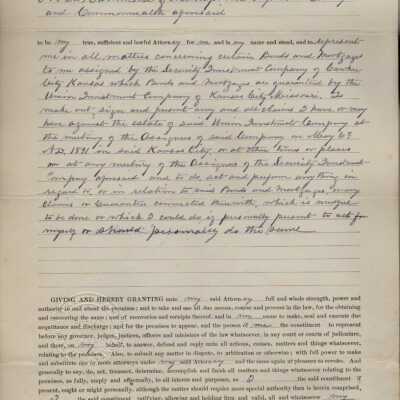 and Commonwealth aforesaid
to be my true, sufficient and lawful Attorney for me and in my name and stead, and to represent
me in all matters concerning certain Bonds and Mortgages
to me assigned by the Security Investment Company of
City Kansas which Bonds and Mortgages are guaranteed by the
Union Investment Company of Kansas City Missouri. To
make out, sign and present any and all claims I have or may
have against the estate of said Union Investment Company at
the meeting of the Assignees of said Company on May 6th
A.D. 1891 in said Kansas City, or at other times or places
or at any meeting of the Assignees of the Security Investment
Company aforesaid and to do act and perform anything in
regard to or in relation to said Bonds and Mortgages, or any
claims or Guarantee connected therewith, which is
to be done or which I could do if personally present to act for
myself or should personally do the same.
GIVING AND HEREBY GRANTING unto my said Attorney full and whole strength, power and
authority in and about the premises; and to take and use all due means, course and process in the law, for the obtaining
and recovering the same; and of recoveries and receipts thereof, and in my name to make, seal and execute due
acquittance and discharge; and for the premises to appear, and the person of me the constituent to represent
before any governor, judges, justices, officers and ministers of the law whatsoever, in any court or courts of judicature,
and there, on my behalf, to answer, defend and reply unto all actions, causes, matters and things whatsoever,
relating to the premises. Also, to submit any matter in dispute, to arbitration or otherwise; with full power to make
and substitute one or more attorneys under my said Attorney and the same again at pleasure to revoke. And
generally to say, do, act, transact, determine, accomplish and finish all matters and things whatsoever relating to the
premises, as fully, amply and effectually, to all intents and purposes, as I the said constituent if
present, ought or might personally, although the matter should require more special authority than is herein comprised,
I the said constituent ratifying, allowing and holding firm and valid, all and whatsoever my